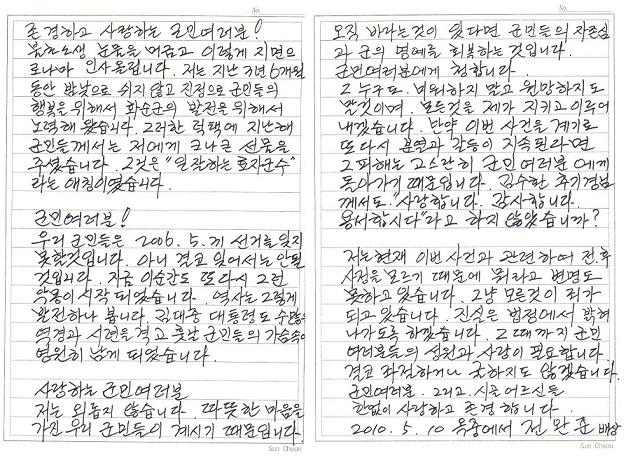 No.
존경하고 사랑하는 군민여러분!
눈물을 머금고 이렇게 지면으
로나마 인사올립니다. 저는 지난 3년 6개월
동안 밤낮으로 쉬지 않고 진정으로 군민들의
행복을 위해서 화순군의 발전을 위해서
노력해 왔습니다. 그러한 덕택에 지난해
군민들께서는 저에게 크나큰 선물을
주셨습니다. 그것은 "일잘하는 효자군수"
라는 애칭이였습니다.
군민여러분!
우리 군민들은 2006. 5. 31 선거를 잊지
못할것입니다. 아니 결코 잊어서는 안될
것입니다. 지금 이순간도 또 다시 그런
악몽이 시작 되였습니다. 역사는 그렇게
한가 봅니다. 김대중 대통령도 수많은
역경과 시련을 겪고 훗날 군민들의 가슴속에
영원히 남게 되였습니다.
사랑하는 군민여러분
저는 외롭지 않습니다. 따뜻한 마음을
가진 우리 군민들이 계시기 때문입니다.
Sun Cheon
No.
오직 바라는것이 있다면 군민들의 자존심
과 군의 명예를 회복하는 것입니다.
군민여러분에게 청합니다.
그 누구도 미워하지 말고 원망하지도
말것이며. 모든것을 제가 지키고 이루어
내겠습니다. 만약 이번 사건을 계기로
또 다시 분열과 갈등이 지속된다면
그 피해는 고스란히 군민여러분에게
돌아가기 때문입니다. 김수환 추기경님
께서도 "사랑합니다. 감사합니다.
용서합시다"라고 하지 않았습니까?
저는 현재 이번 사건과 관련하여 전.후
사정을 모르기 때문에 뭐라고 변명도
못하고 있습니다. 그냥 모든것이 죄가
되고 있습니다. 진실은 법정에서 밝혀
나가도록 하겠습니다. 그때까지 군민
여러분들의 성원과 사랑이 필요합니다.
결코 좌절하거나 굴하지도 않겠습니다.
군민여러분. 그리고. 시골 어르신들
한없이 사랑하고 존경합니다.
2010. 5. 10 옥중에서 전완준 배상
Sun Cheon